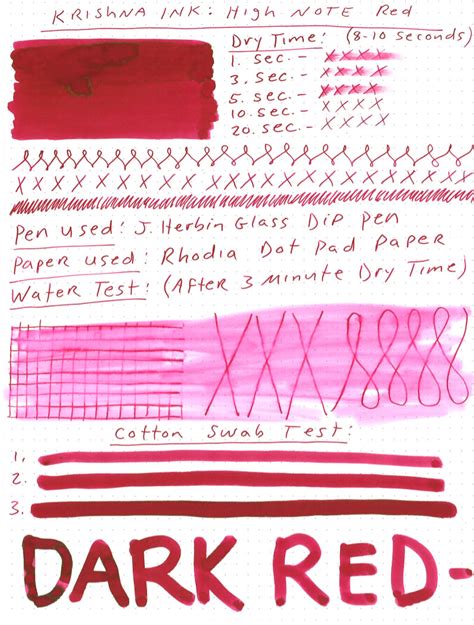 KRISHNA INK: HIGH NOTE Red
Dry Time: (8-10 seconds)
1. sec. - xxxx
3. sec. - xxxx
5. sec. - xxxx
10. sec. - xxxx
20. sec. - xxxx
X X X X X X X X X X X X X X X X X X X X X X X
Pen used: J. Herbin Glass Dip Pen
Paper used: Rhodia Dot Pad Paper
Water Test: (After 3 minute Dry Time)
XXX
Cotton Swab Test:
1.
2.
3.
DARK RED-